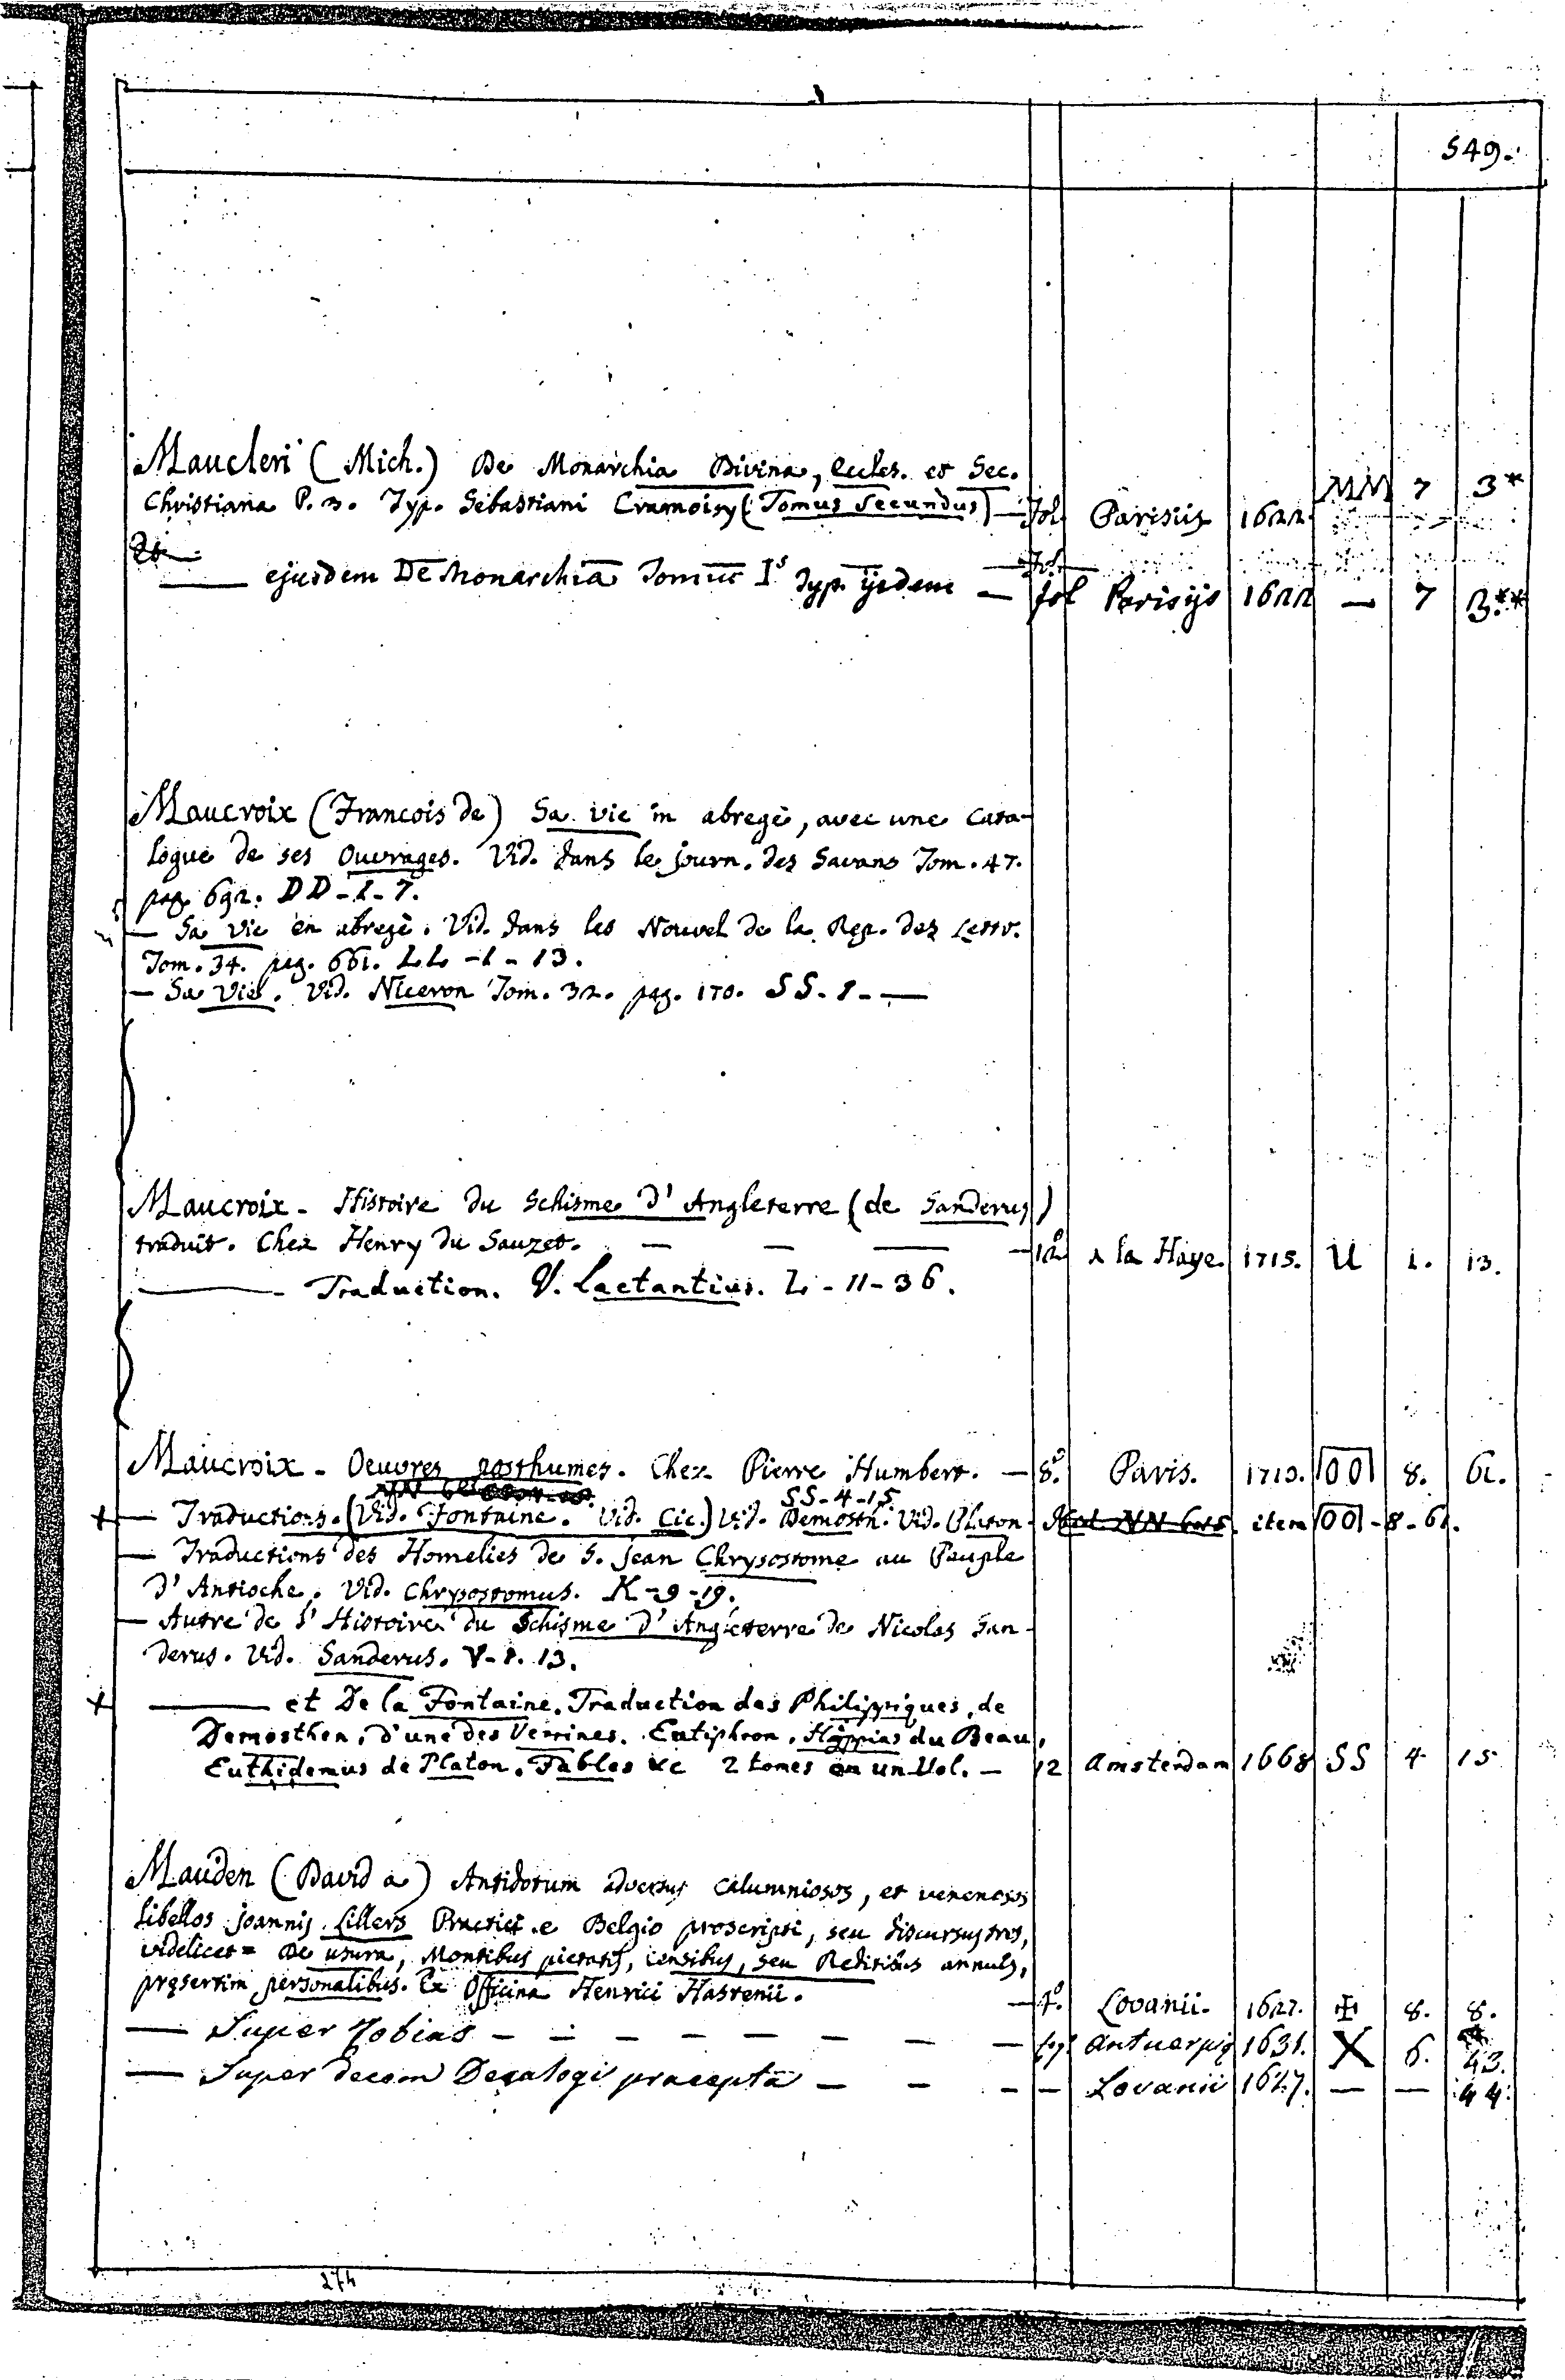 549.
Maucleri (Mich.) De Monarchia Divina, Eccles. et Sec.
Christiana P. 2. Typ. Sebastiani Cramoisy (Tomus Secundus) — Fol. Parisiis 1622 MM 7 3*
— ejusdem De Monarchia Tomus I.s Typ. ijsdem — fol Parisijs 1622 — 7 3.**
Maucroix (Francois de) Sa vie in abregè, avec une Cata-
logue de ses Ouvrages. Vid. dans le journ. des Savans Tom. 47.
pag. 692. DD-1-7.
— Sa Vie en abregè. Vid. dans les Nouvel de la Rep. des Lettr.
Tom. 34. pag. 661. LL-1-13.
— Sa Vie. Vid. Niceron Tom. 32. pag. 170. SS-8-—
Maucroix - Histoire du Schisme d'Angleterre (de Sanderus)
traduit. Chez Henry du Sauzet. — — — — 12.o A la Haye. 1715. U 1. 13.
— Traduction. V. Lactantius. L-11-36.
Maucroix - Oeuvres posthumes. Chez Pierre Humbert. — 8.o Paris. 1710. OO 8. 61.
SS-4-15
+ — Traductions. (Vid. Fontaine. Vid. Cic.) Vid. Demosth. Vid. Platon item OO-8-61.
— Traductions des Homelies de S. Jean Chrysostome au Peuple
d'Antioche. Vid. Chrysostomus. K-9-19.
— Autre de l'Histoire du Schisme d'Angleterre de Nicolas San-
derus. Vid. Sanderus. V-1.13.
+ — et De la Fontaine. Traduction des Philippiques, de
Demosthen, d'une des Verrines. Eutiphron. Hyppias du Beau,
Euthidemus de Platon. Fables &c 2 tomes en un Vol. — 12 Amsterdam 1668 SS 4 15
Mauden (David a) Antidotum adversus calumniosos, et venenosos
libellos joannis Lillers Practici e Belgio proscripti, seu discursus tres,
videlicet = De usura, Montibus pietatis, censibus, seu Reditibus annuis,
pręsertim personalibus. Ex Officina Henrici Hastenii. — 4.o Lovanii. 1627. 8. 8.
— Super Tobias — — — — — — — fol Antuerpię 1631. X 6. 43.
— Super decem Decalogi præcepta — — — — Lovanii 1627. — — 44.
274